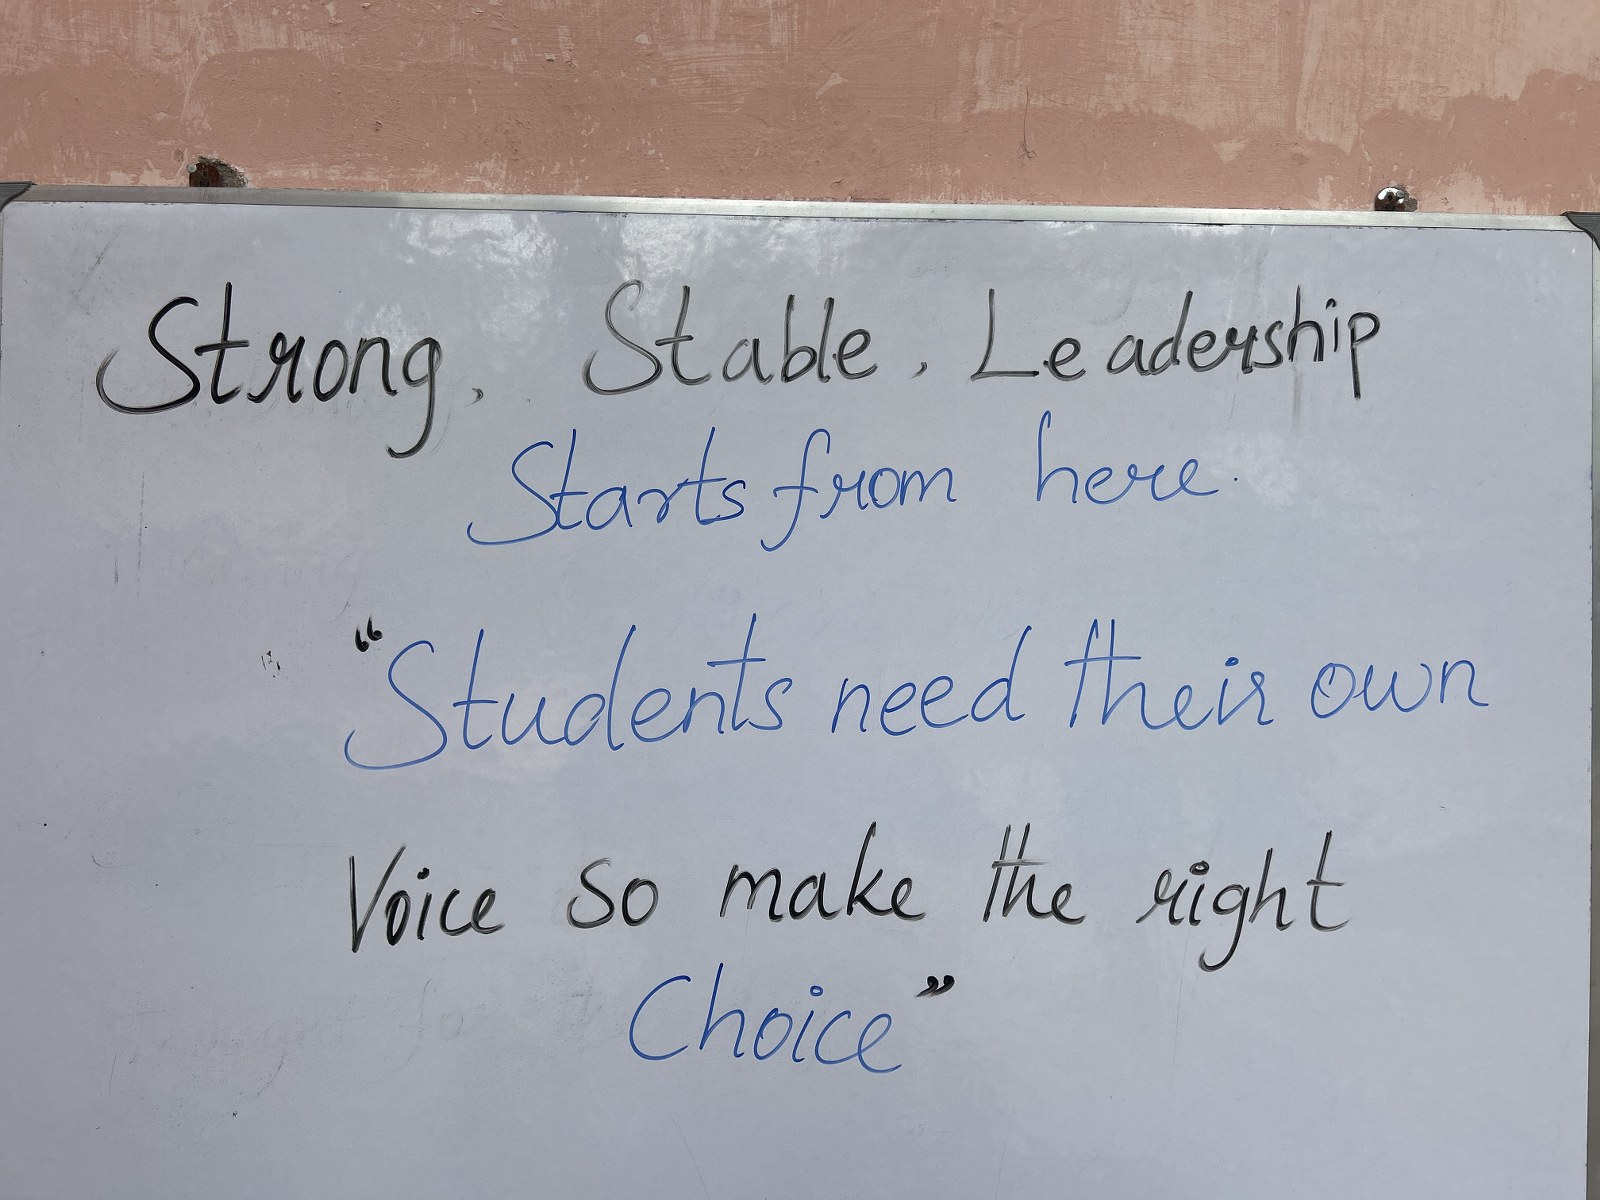 Strong, Stable, Leadership
Starts from here.
"Students need their own
Voice so make the right
Choice"